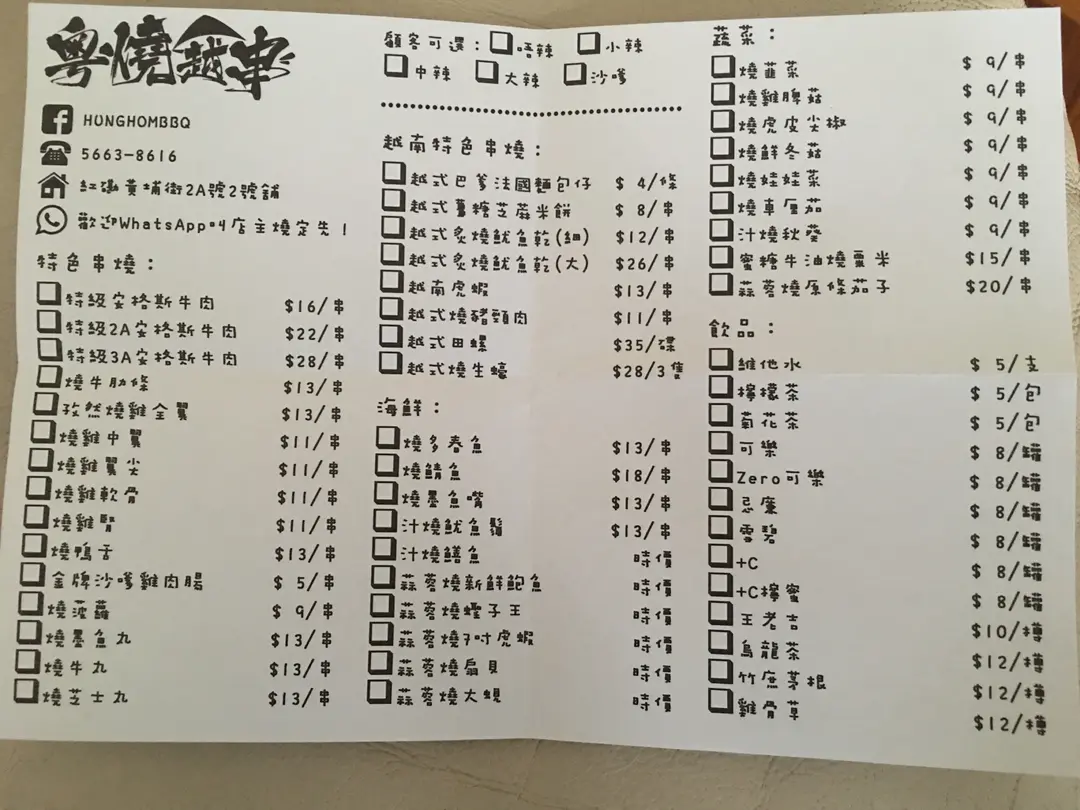 粵燒越串
HUNGHOMBBQ
5663-8616
紅磡黃埔街2A號2號舖
歡迎WhatsApp叫店主燒定先!
特色串燒：
特級安格斯牛肉 $16/串
特級2A安格斯牛肉 $22/串
特級3A安格斯牛肉 $28/串
燒牛肋條 $13/串
孜然燒雞全翼 $13/串
燒雞中翼 $11/串
燒雞翼尖 $11/串
燒雞軟骨 $11/串
燒雞腎 $11/串
燒鴨舌 $13/串
金牌沙嗲雞肉腸 $ 5/串
燒菠蘿 $ 9/串
燒墨魚丸 $13/串
燒牛丸 $13/串
燒芝士丸 $13/串
顧客可選：唔辣 小辣
中辣 大辣 沙嗲
越南特色串燒：
越式巴爹法國麵包仔 $ 4/條
越式薑糖芝蔴米餅 $ 8/串
越式炙燒魷魚乾(細) $12/串
越式炙燒魷魚乾(大) $26/串
越南虎蝦 $13/串
越式燒豬頸肉 $11/串
越式田螺 $35/碟
越式燒生蠔 $28/3隻
海鮮：
燒多春魚 $13/串
燒鯖魚 $18/串
燒墨魚嘴 $13/串
汁燒魷魚鬚 $13/串
汁燒鱔魚 時價
蒜蓉燒新鮮鮑魚 時價
蒜蓉燒蟶子王 時價
蒜蓉燒7吋虎蝦 時價
蒜蓉燒扇貝 時價
蒜蓉燒大蜆 時價
蔬菜：
燒韮菜 $ 9/串
燒雞脾菇 $ 9/串
燒虎皮尖椒 $ 9/串
燒鮮冬菇 $ 9/串
燒娃娃菜 $ 9/串
燒車厘茄 $ 9/串
汁燒秋葵 $ 9/串
蜜糖牛油燒粟米 $15/串
蒜蓉燒原條茄子 $20/串
飲品：
維他水 $ 5/支
檸檬茶 $ 5/包
菊花茶 $ 5/包
可樂 $ 8/罐
Zero可樂 $ 8/罐
忌廉 $ 8/罐
雪碧 $ 8/罐
+C $ 8/罐
+C檸蜜 $ 8/罐
王老吉 $10/樽
烏龍茶 $12/樽
竹蔗茅根 $12/樽
雞骨草 $12/樽